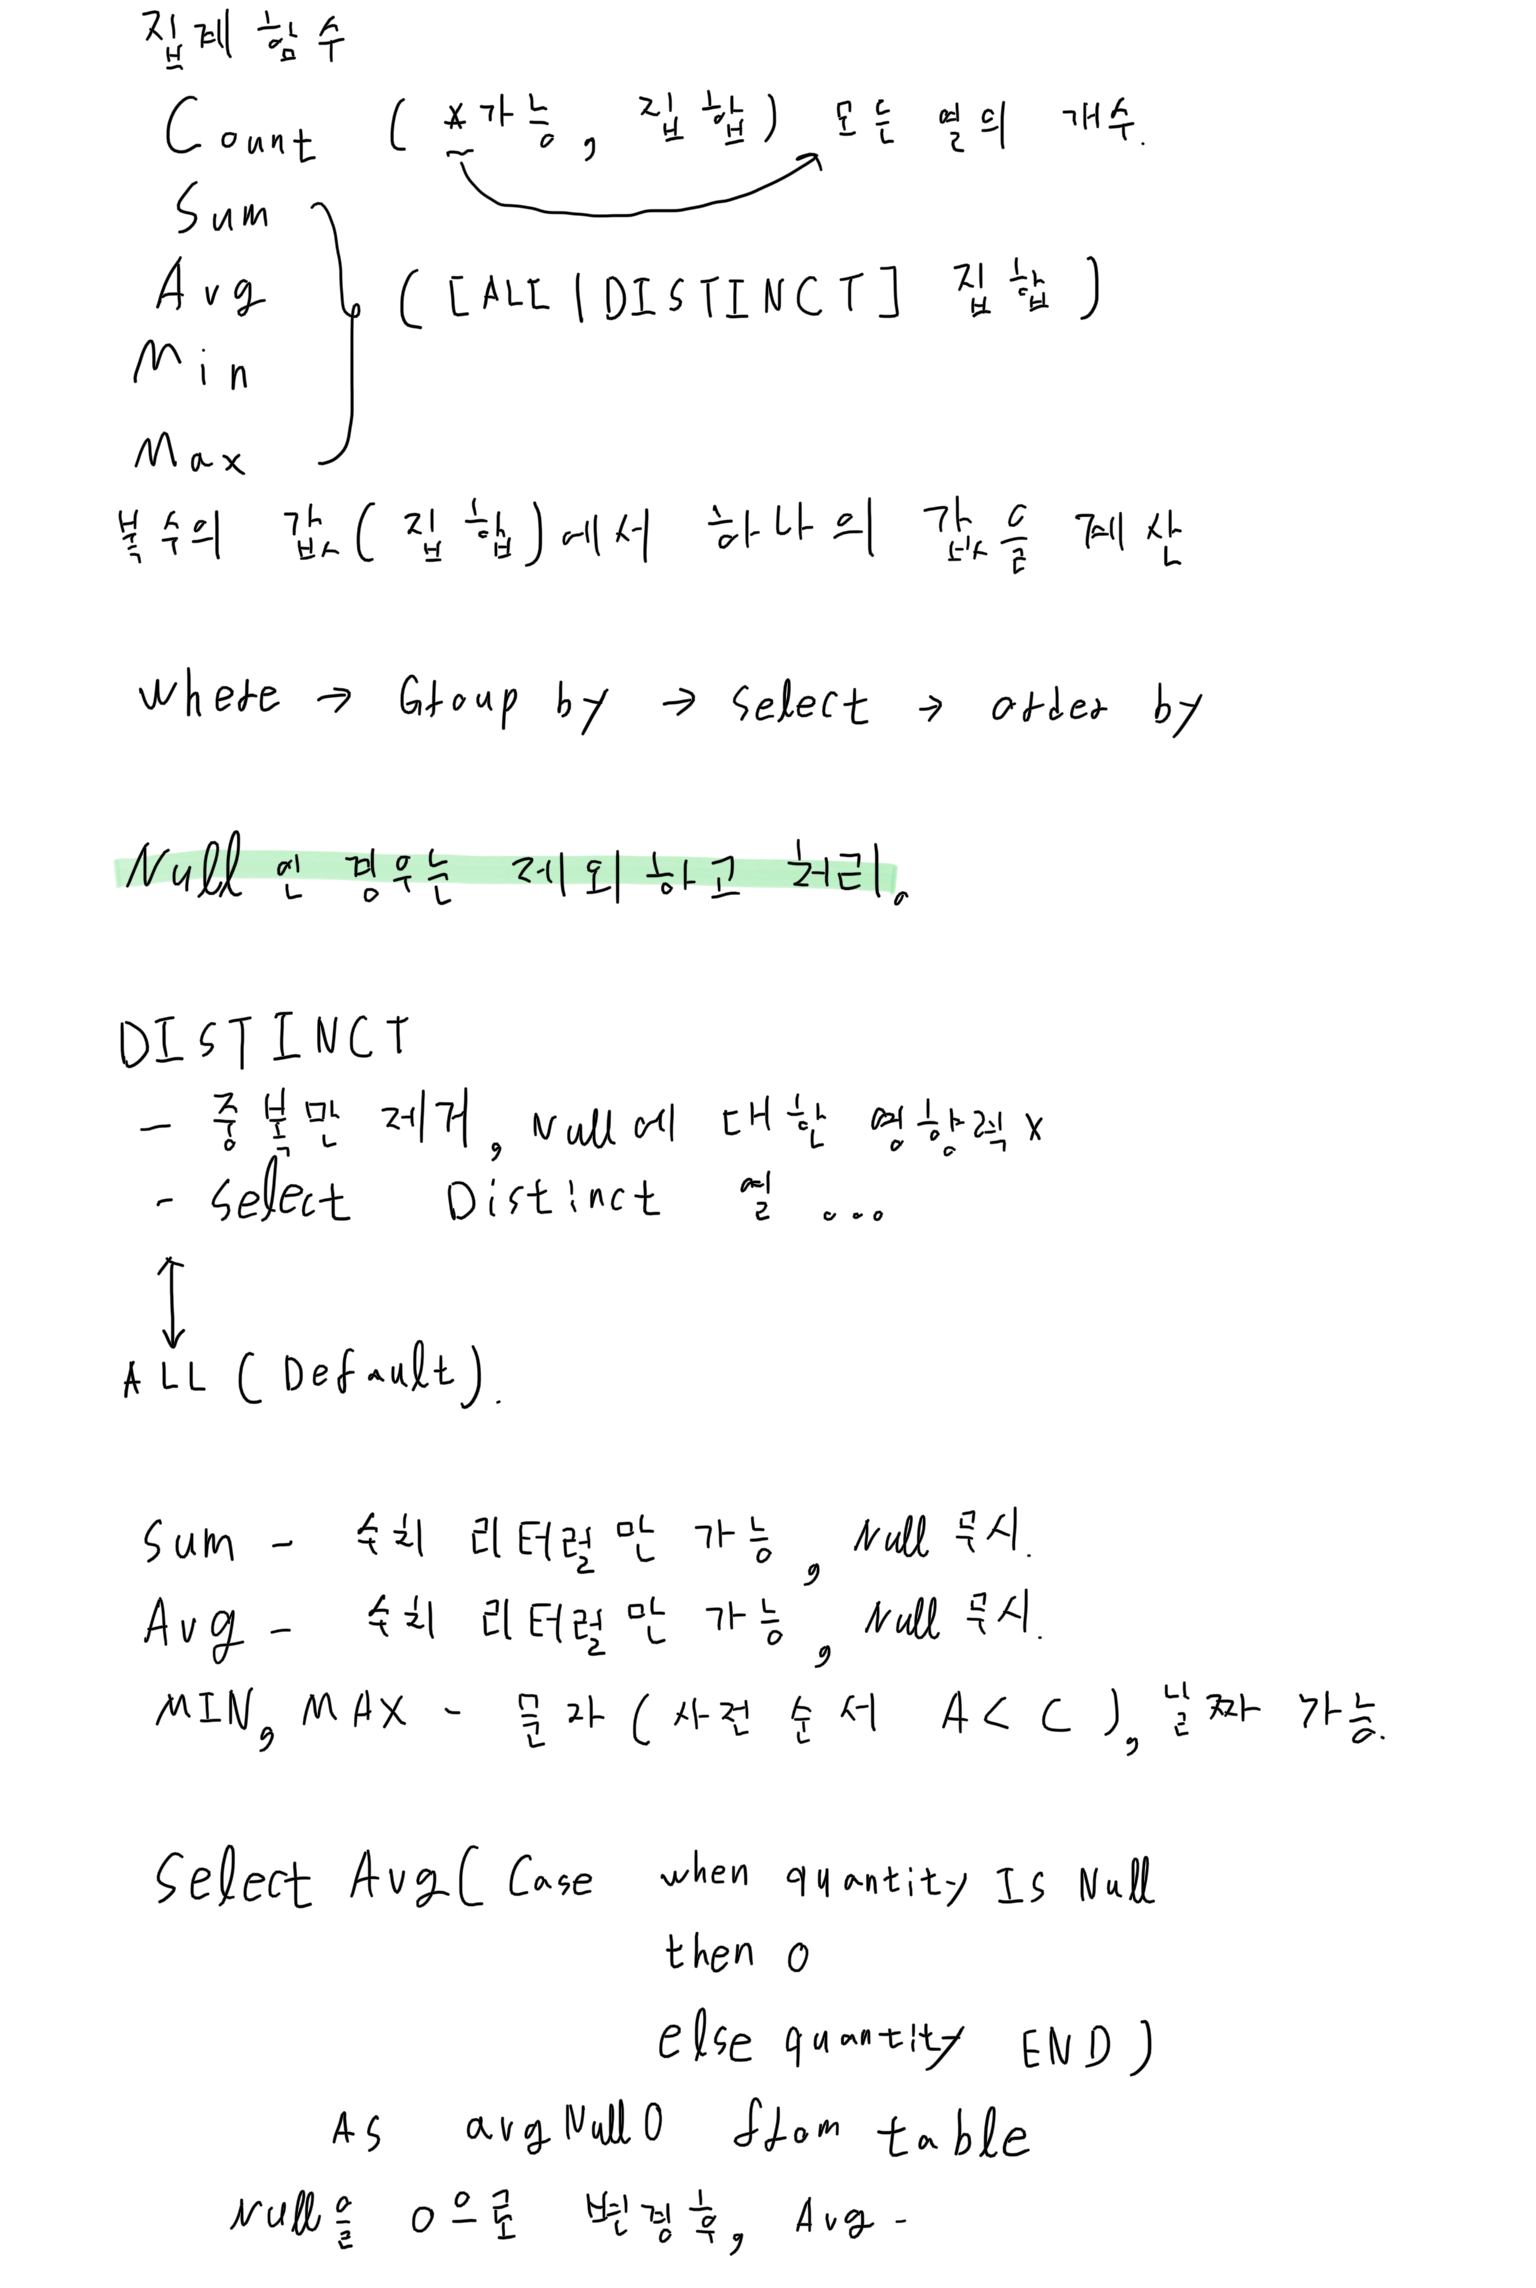 집계 함수
Count ( *가능, 집합) 모든 열의 개수.
Sum
Avg ( [ALL | DISTINCT] 집합 )
Min
Max
복수의 값(집합)에서 하나의 값을 계산
where → Group by → select → order by
Null 인 경우는 제외하고 처리.
DISTINCT
- 중복만 제거, Null에 대한 영향력 x
- select Distinct 열 ...
ALL (Default).
Sum - 수치 리터럴만 가능, Null 무시.
Avg - 수치 리터럴만 가능, Null 무시.
MIN, MAX - 문자(사전 순서 A < C),날짜 가능.
Select Avg( Case when quantity Is Null
then 0
else quantity END )
As avgNull0 from table
Null을 0으로 변경후, Avg -